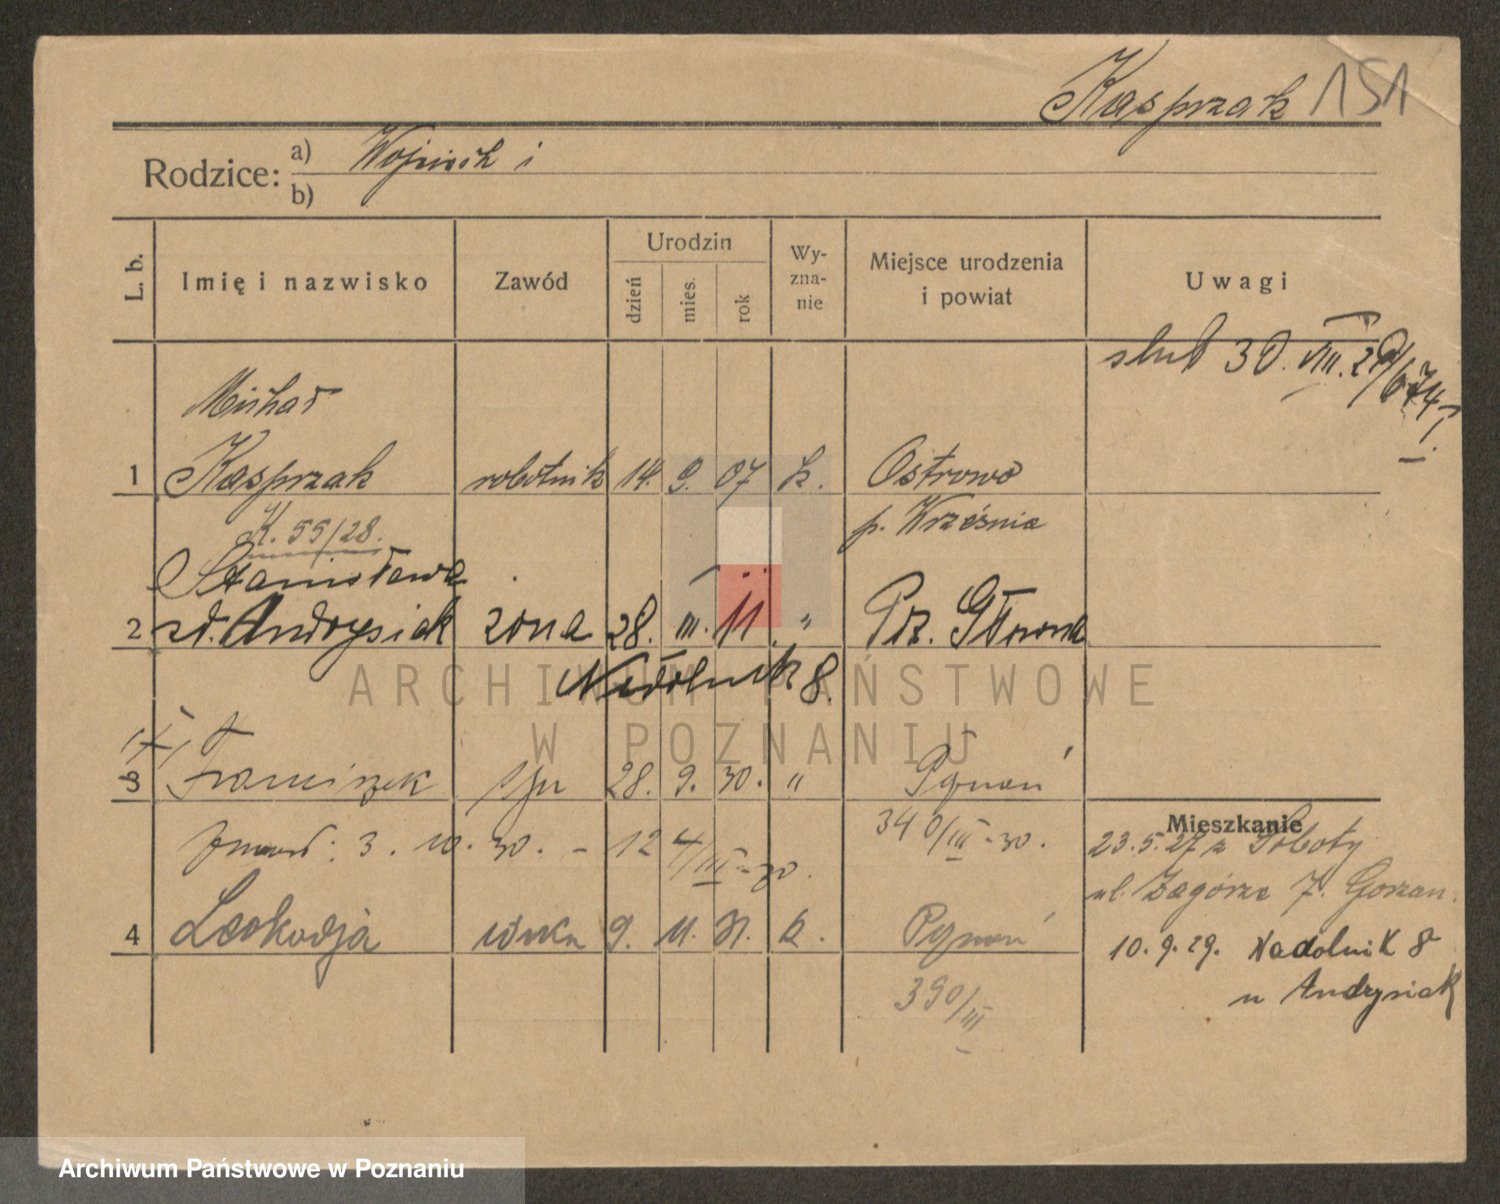 Kasprzak 151
Rodzice: a) Wojciech i
b)
L. b. Imię i nazwisko Zawód Urodzin dzień mies. rok Wy-zna-nie Miejsce urodzenia i powiat Uwagi
ślub 30. VIII. 29/674 I.
Michał
1 Kasprzak robotnik 14. 9. 07 k. Ostrowo
K. 55/28. p. Września
Stanisława
2 zd. Andrysiak żona 28. III. 11. " Pz. Główna
Nadolnik 8.
3 Franciszek syn 28. 9. 30. " Poznań
340/III-30.
zmarł: 3. 10. 30. - 124/III-30.
4 Leokadja córka 9. 11. 31. k. Poznań
390/III
Mieszkanie
23.5.27 z Soboty
ul. Zagórze 7. Gorzan.
10. 9. 29. Nadolnik 8
u Andrysiak
ARCHIWUM PAŃSTWOWE
W POZNANIU
Archiwum Państwowe w Poznaniu